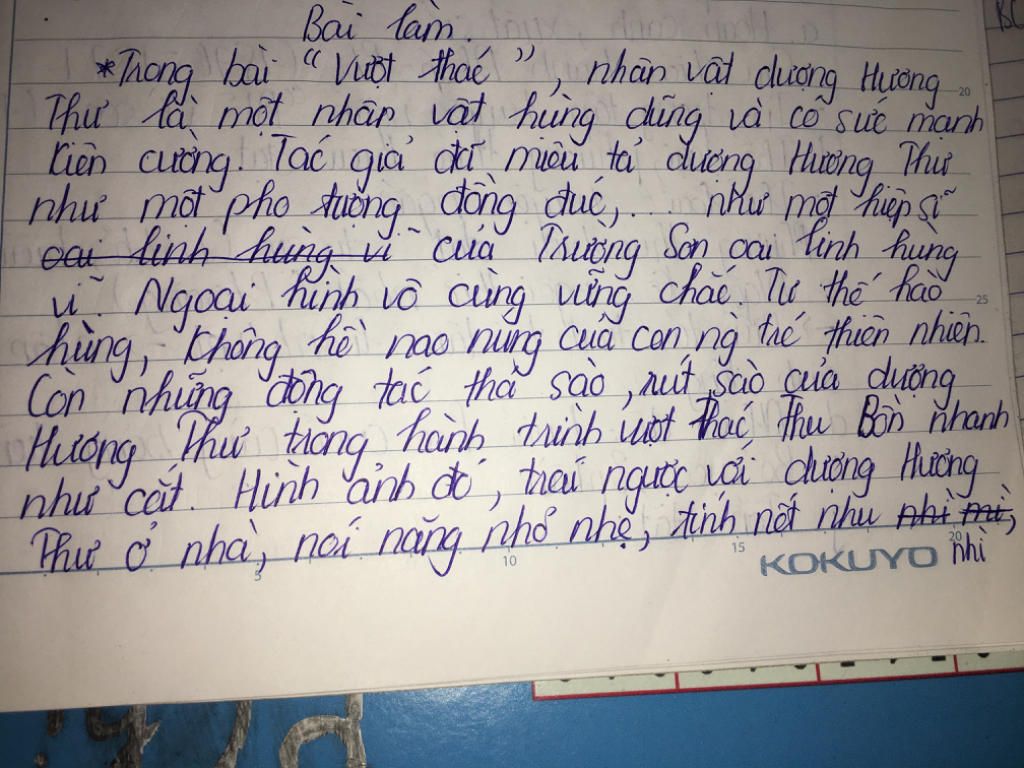 Bài làm.
*Trong bài "Vượt thác", nhân vật dượng Hương
Thư là một nhân vật hùng dũng và có sức mạnh
kiên cường. Tác giả đã miêu tả dượng Hương Thư
như một pho tượng đồng đúc,... như một hiệp sĩ
oai linh hùng vĩ của Trường Sơn oai linh hùng
vĩ. Ngoại hình vô cùng vững chắc. Tư thế hào
hùng, không hề nao núng của con ng trc thiên nhiên.
Còn những động tác thả sào, rút sào của dượng
Hương Thư trong hành trình vượt thác Thu Bồn nhanh
như cắt. Hình ảnh đó, trái ngược với dượng Hương
Thư ở nhà, nói năng nhỏ nhẹ, tính nết nhu nhì mì,
nhì
KOKUYO
20
25
5
10
15
20